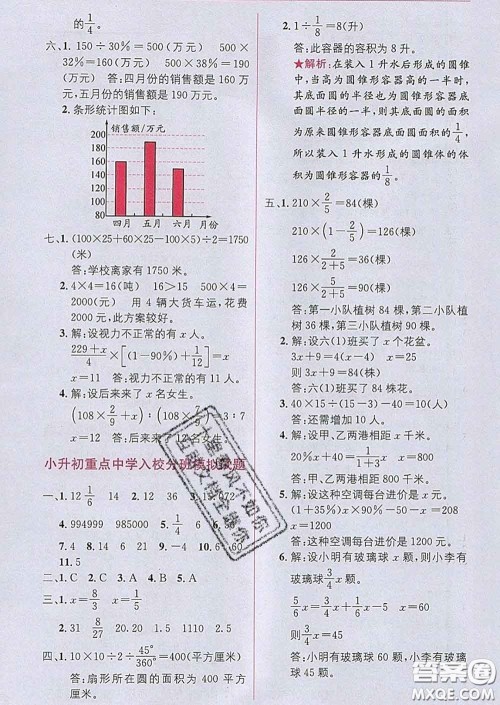 的1/4。
六、1. 150÷30%=500(万元) 500×
32%=160(万元) 500×38%=190
(万元) 答:四月份的销售额是 160 万
元,五月份的销售额是 190 万元。
2. 条形统计图如下:
销售额/万元
200
180
160
140
120
100
80
四月 五月 六月 月份
七、1. (100×25+60×25-100×5)÷2=1750
(米)
答:学校离家有 1750 米。
2. 4×4=16(吨) 500×4=
2000(元) 用 4 辆大货车运,花费
2000 元,此方案较好。
3. 解:设视力不正常的有 x 人。
(229+x)/4×[(1-90%)+1/12]=x
x=11 答:视力不正常的有 11 人。
4. 解:设后来来了 x 名女生。
答:后来来了 12 名女生。
小升初重点中学入校分班模拟
一、1. 12 1/6 2. 14 12 36
4. 994999 985000
7. 4 8. 9 9. 6 10.
11. 5
二、1. C 2. A 3. B 4. A 5. A
三、1. x=8/3 x=
2. 31 8/27 20.20 1.5 1110
四、1. 10×10×2÷45°/360°=400(平方厘米)
答:扇形所在圆的面积为 400 平方
厘米。
2. 1÷1/8=8(升)
答:此容器的容积为 8 升。
★解析:在装入 1 升水后形成的圆锥
中,当高为圆锥形容器高的一半时,
其底面圆的半径也为圆锥形容器底
面圆半径的一半,则其底面圆的面积
为原来圆锥形容器底面圆面积的1/4,
所以装入 1 升水形成的圆锥体的体
积为圆锥形容器的1/8。
五、1. 210×2/5=84(棵)
210×(1-2/5)×2/(2+5)=36(棵)
210×(1-2/5)×5/(2+5)=90(棵)
答:第一小队植树 84 棵,第二小队植
树 36 棵,第三小队植树 90 棵。
2. 解:设六(1)班买了 x 个花盆。
3x+9=4(x-4) x=25
则 3x+9=84
答:六(1)班买了 84 株花。
答:还需增加 10 人。
4. 解:设甲、乙两港相距 x 千米。
答:甲、乙两港相距 500 千米。
5. 解:设这种空调每台进价是 x 元。
x=1200
答:这种空调每台进价是 1200 元。
6. 解:设小明有玻璃球 x 颗,则小李有
玻璃球3/4x 颗。
x=60
则3/4x=45
答:小明有玻璃球 60 颗,小李有
玻璃球 45 颗。
答案圈
MXQE.COM